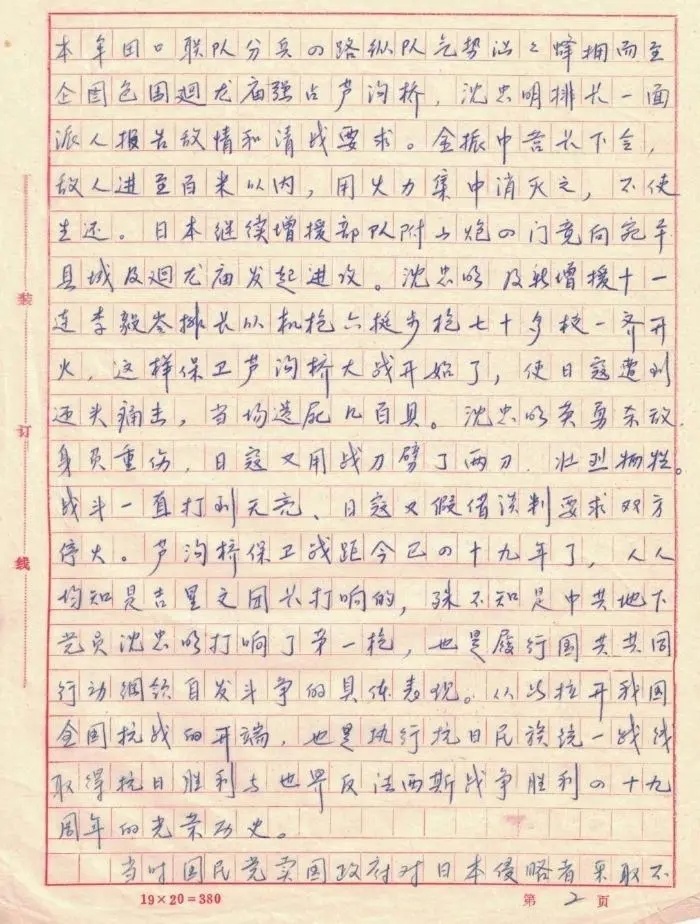 本牟田口联队分兵四路纵队气势汹之蜂拥而至
企图包围廻龙庙强占芦沟桥，沈忠明排长一面
派人报告敌情和请战要求。金振中营长下令，
敌人进至百米以内，用火力集中消灭之，不使
生还。日本继续增援部队附山炮四门竟向宛平
县城及廻龙庙发起进攻。沈忠明及新增援十一
连李毅岑排长以机枪六挺步枪七十多枝一齐开
火，这样保卫芦沟桥大战开始了，使日寇遭到
迎头痛击，当场遗尸几百具。沈忠明英勇杀敌，
身负重伤，日寇又用战刀劈了两刀，壮烈牺牲。
战斗一直打到天亮、日寇又假借谈判要求双方
停火。芦沟桥保卫战距今已四十九年了，人人
均知是吉星文团长打响的，殊不知是中共地下
党员沈忠明打响了第一枪，也是履行国共共同
行动纲领自发斗争的具体表现。从此拉开我国
全国抗战的开端，也是执行抗日民族统一战线
取得抗日胜利与世界反法西斯战争胜利四十九
周年的光荣历史。
当时国民党卖国政府对日本侵略者采取不
装
订
线
19×20=380
第 2 页